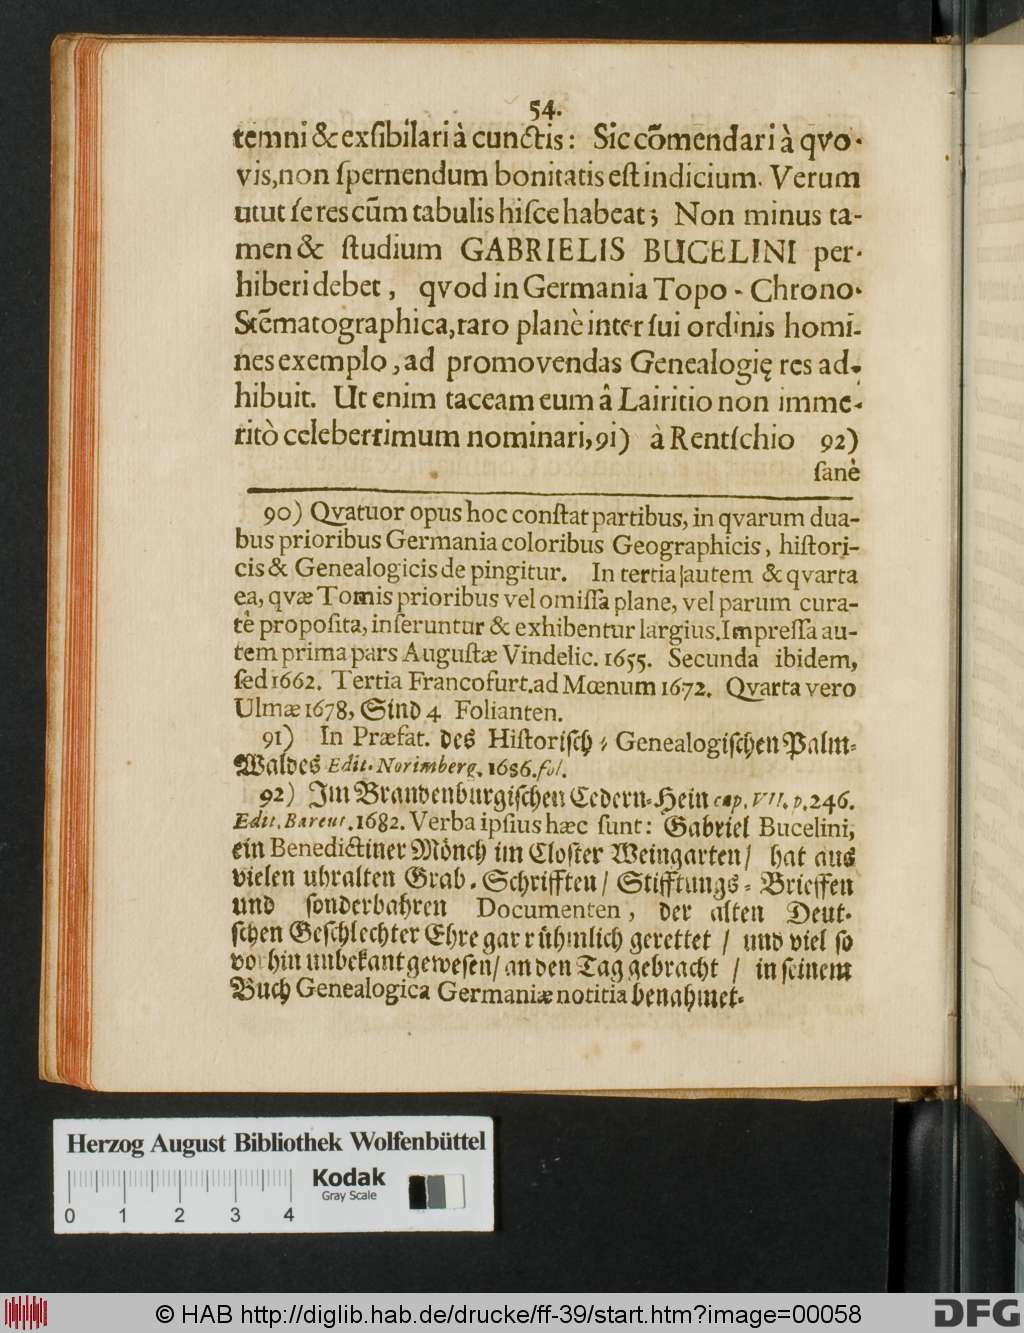 54.
temni & exſibilari à cunctis: Sic com̃endari à qvo-
vis, non ſpernendum bonitatis eſt indicium. Verum
utut ſe res cũm tabulis hiſce habeat; Non minus ta-
men & ſtudium GABRIELIS BUCELINI per-
hiberi debet, qvod in Germania Topo - Chrono-
Stẽmatographica, raro planè inter ſui ordinis homi-
nes exemplo, ad promovendas Genealogię res ad-
hibuit. Ut enim taceam eum â Lairitio non imme-
ritò celeberrimum nominari, 91) à Rentſchio 92)
ſanè
90) Qvatuor opus hoc conſtat partibus, in qvarum dua-
bus prioribus Germania coloribus Geographicis, hiſtori-
cis & Genealogicis de pingitur. In tertia autem & qvarta
ea, qvæ Tomis prioribus vel omiſſa plane, vel parum cura-
tè propoſita, inſeruntur & exhibentur largius. Impreſſa au-
tem prima pars Auguſtæ Vindelic. 1655. Secunda ibidem,
ſed 1662. Tertia Francofurt. ad Mœnum 1672. Qvarta vero
Ulmæ 1678, Sind 4 Folianten.
91) In Præfat. des Hiſtoriſch - Genealogiſchen Palm-
Waldes Edit. Norimberg. 1686. fol.
92) Im Brandenburgiſchen Cedern-Hein cap. VII. p. 246.
Edit. Bareut. 1682. Verba ipſius hæc ſunt: Gabriel Bucelini,
ein Benedictiner Mönch im Cloſter Weingarten / hat aus
vielen uhralten Grab-Schrifften / Stifftungs-Brieffen
und ſonderbahren Documenten, der alten Deut-
ſchen Geſchlechter Ehre gar rühmlich gerettet / und viel ſo
vorhin unbekant geweſen / an den Tag gebracht / in ſeinem
Buch Genealogica Germaniæ notitia benahmet.
Herzog August Bibliothek Wolfenbüttel
Kodak
Gray Scale
0 1 2 3 4
© HAB http://diglib.hab.de/drucke/ff-39/start.htm?image=00058
DFG